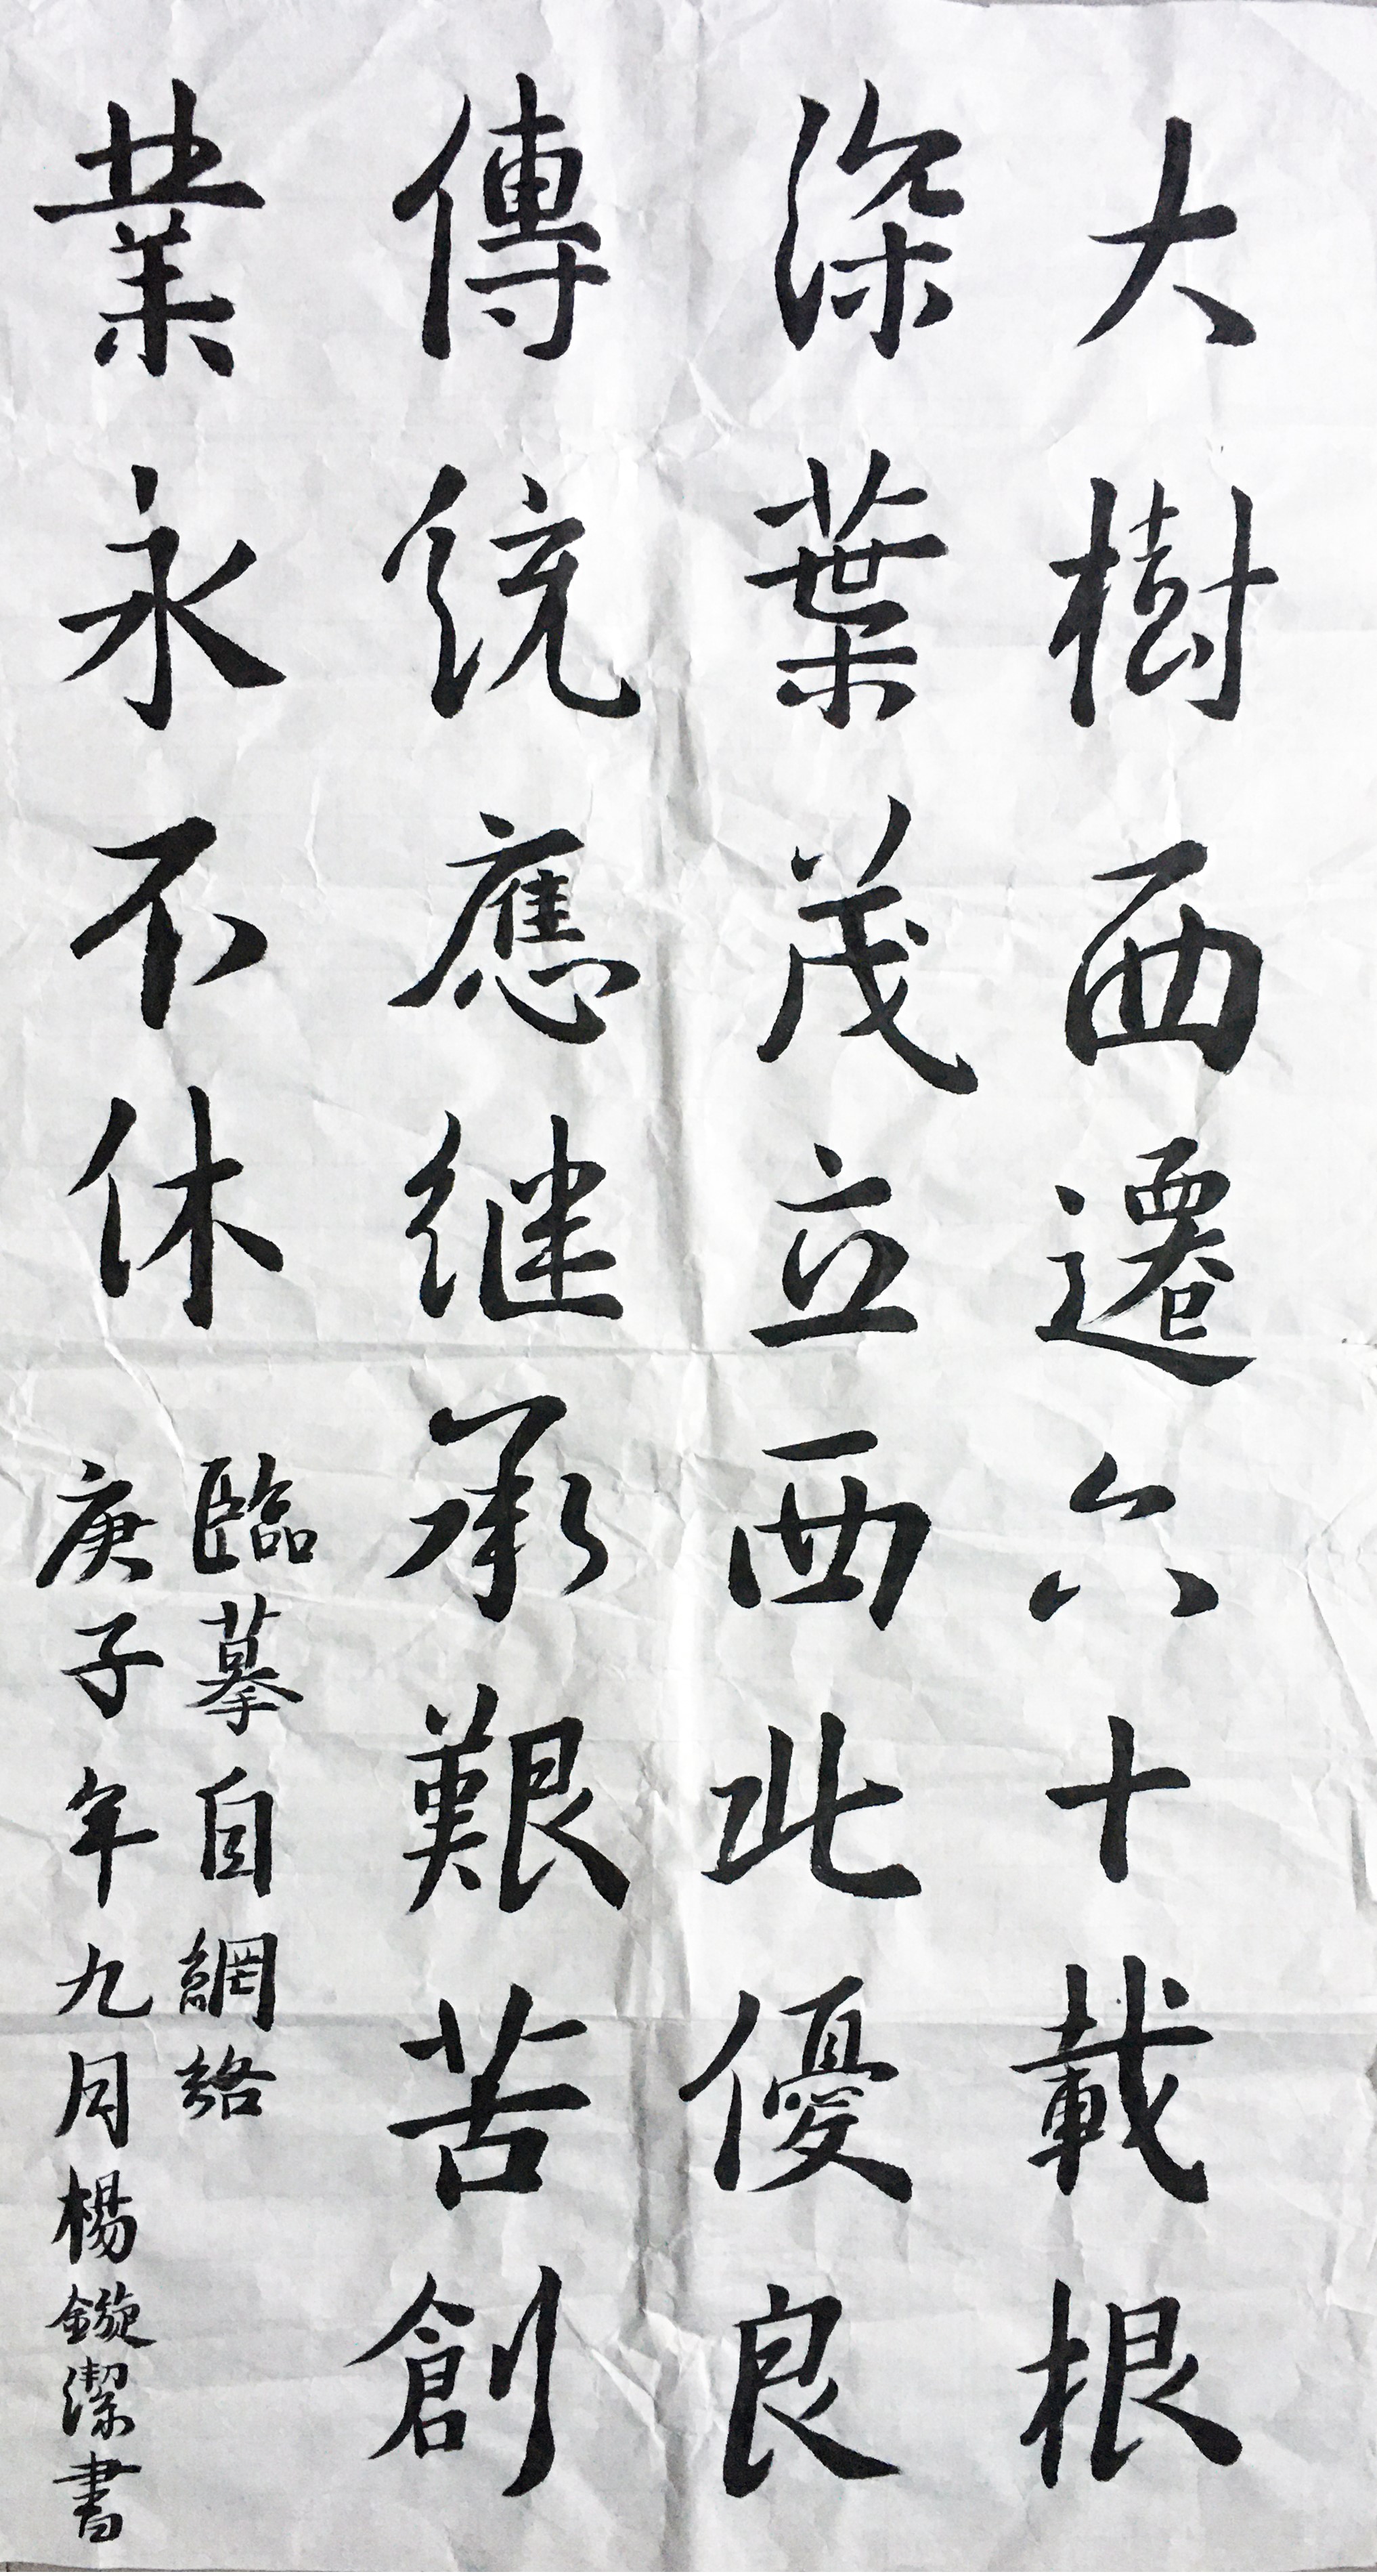 大樹西遷六十載根
深葉茂立西此優良
傳統應继承艱苦創
業永不休
臨摹自網絡
庚子年九月楊鏇潔書